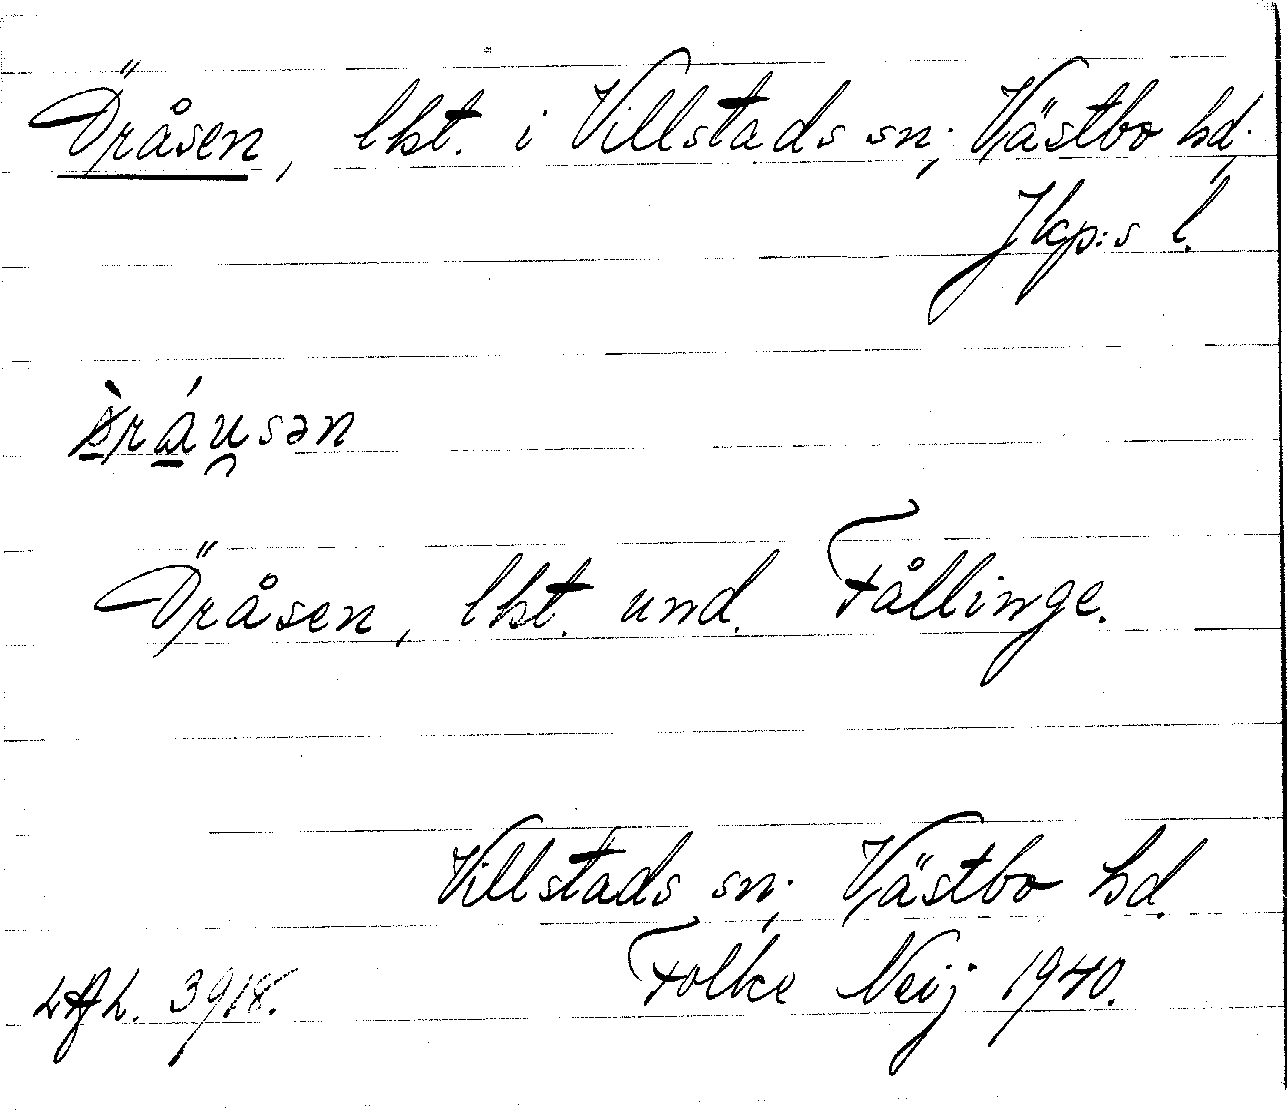 Öråsen, lht. i Villstads sn; Västbo hd;
Jkp:s l.
Öråsen, lht. und. Fållinge.
Villstads sn; Västbo hd.
Folke Neij 1940.
LAL. 3918.